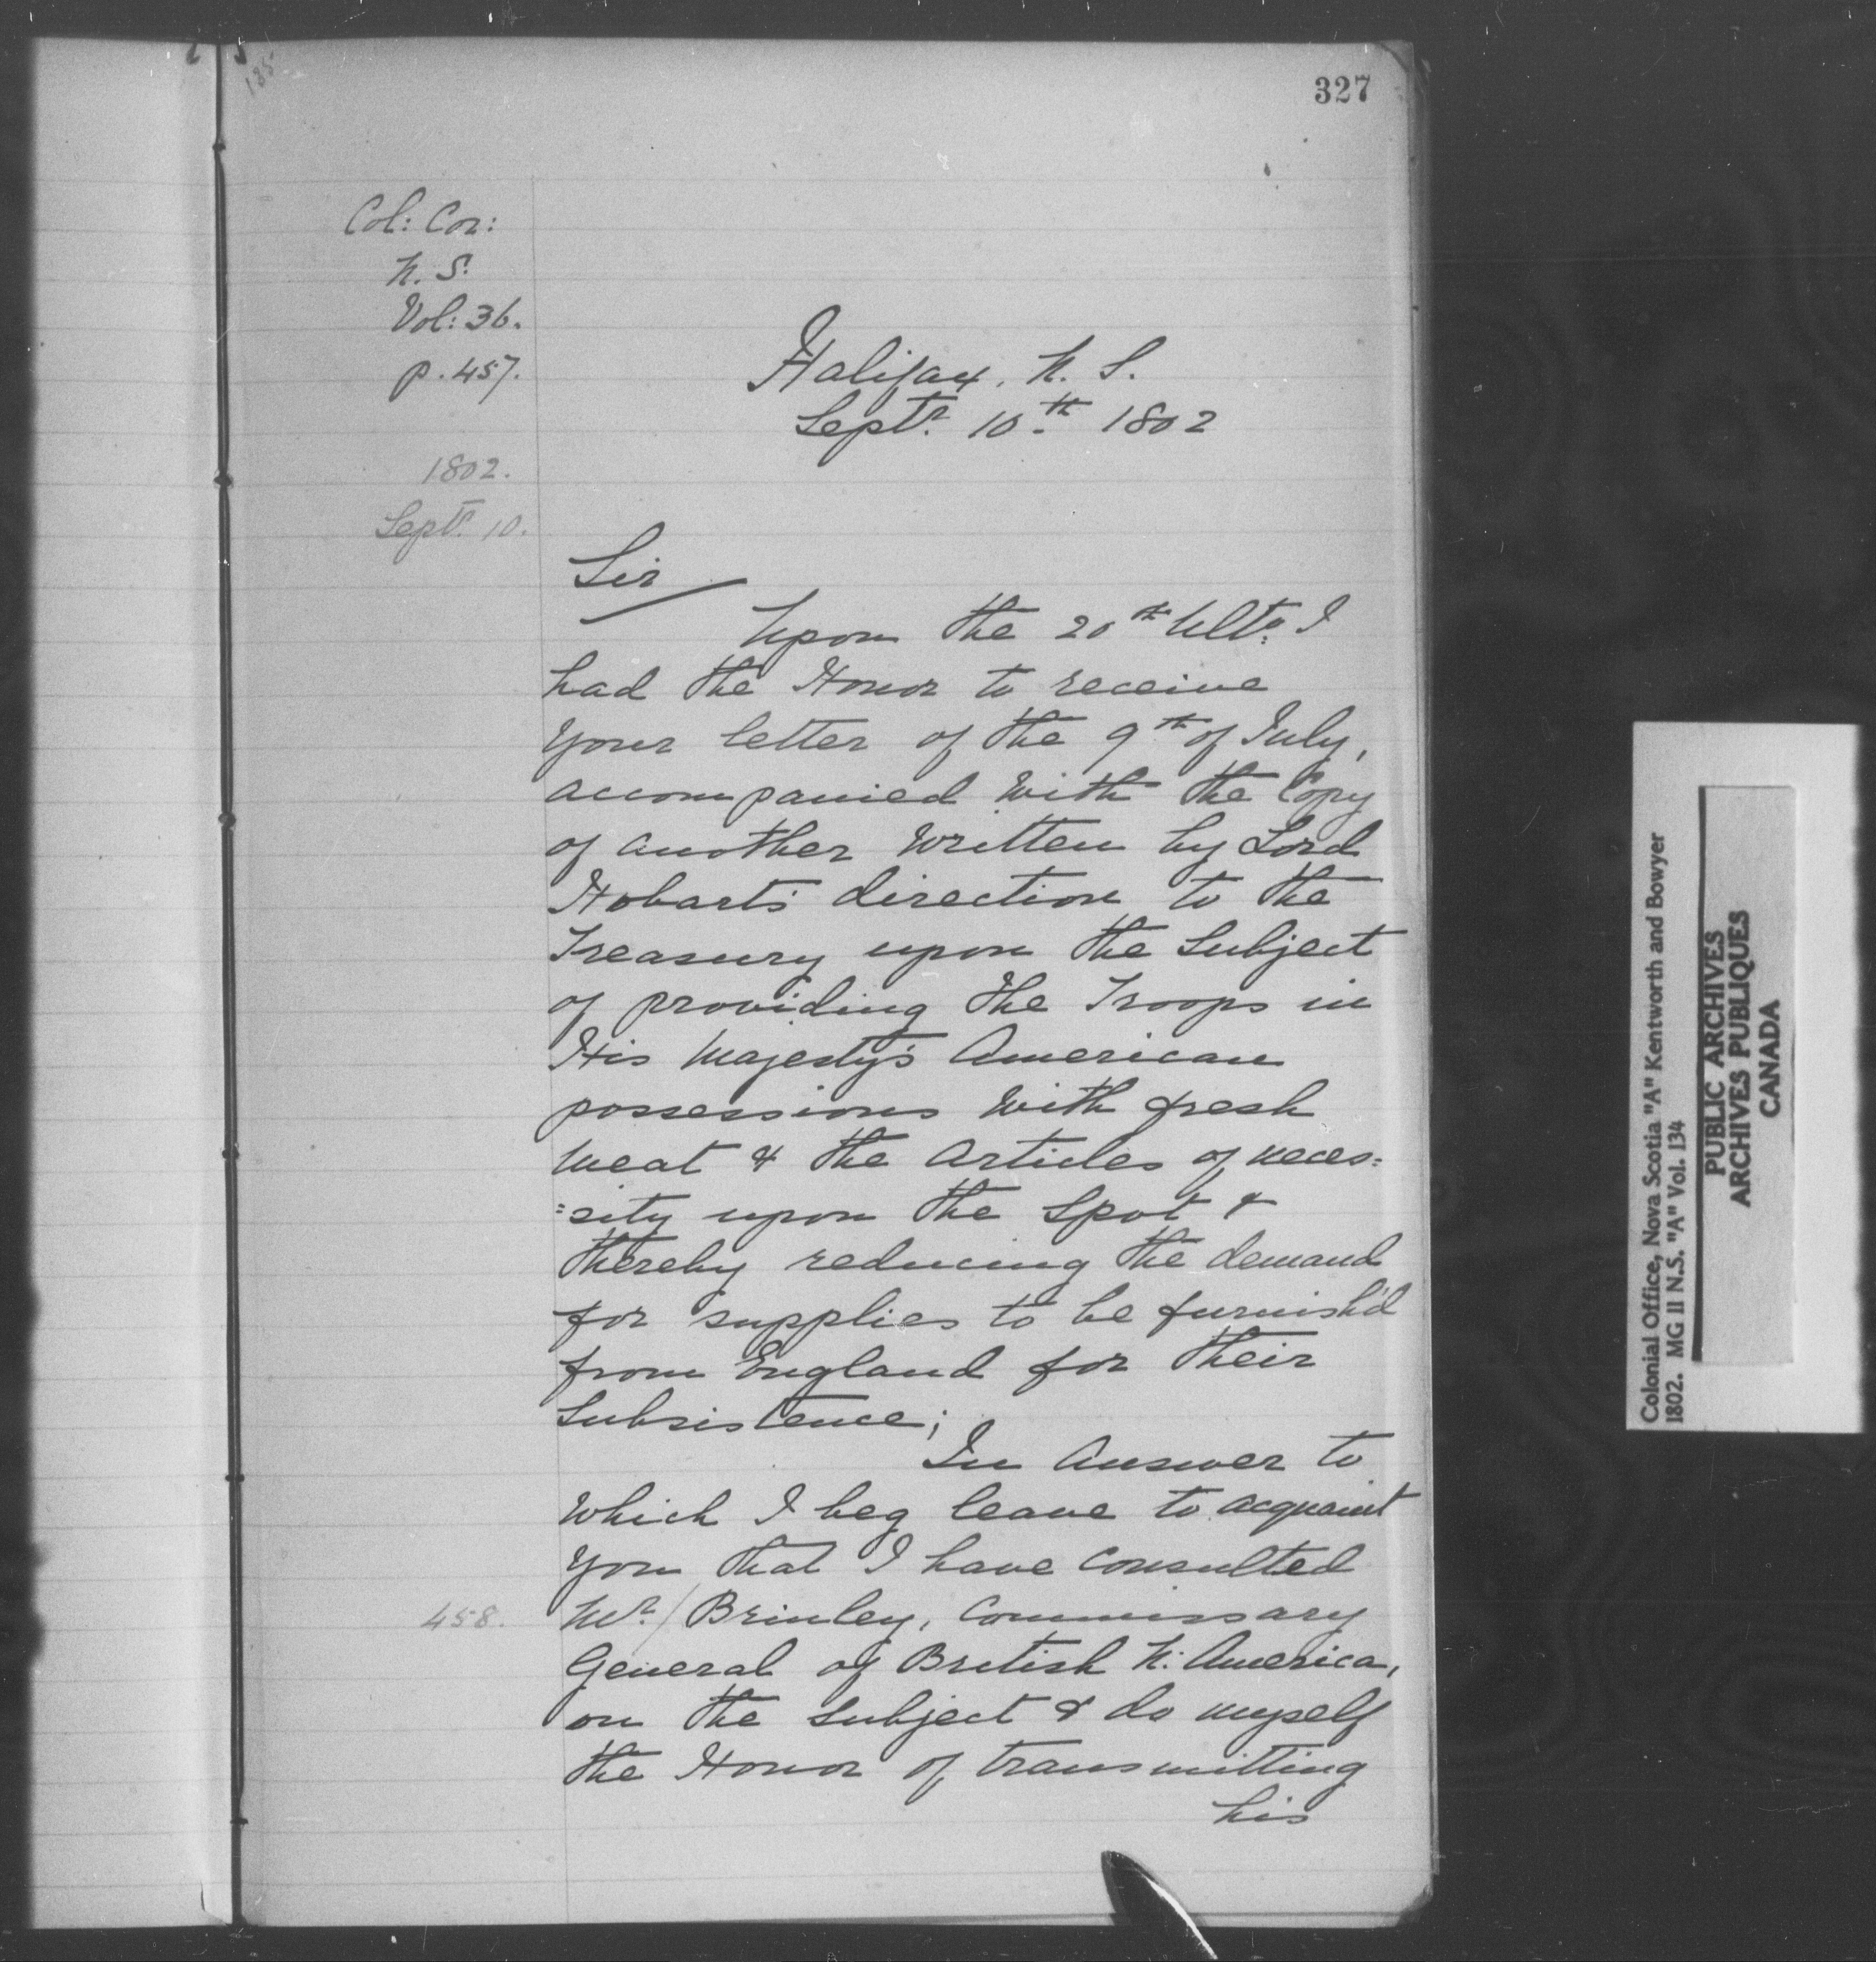 327
185
Col: Cor:
N. S.
Vol: 36.
p. 457.
Halifax, N. S.
Septr. 10th 1802
1802.
Septr. 10.
Sir
Upon the 20th Ulto. I
had the Honor to receive
your letter of the 9th of July,
accompanied with the Copy
of another written by Lord
Hobart's direction to the
Treasury upon the Subject
of providing the Troops in
His Majesty's American
possessions with fresh
Meat & the Articles of neces=
=sity upon the Spot &
thereby reducing the demand
for supplies to be furnish'd
from England for their
Subsistence;
In Answer to
which I beg leave to acquaint
you that I have consulted
458.
Mr. Brinley, Commissary
General of British N. America,
on the Subject & do myself
the Honor of transmitting
his
Colonial Office, Nova Scotia "A" Kentworth and Bowyer
1802. MG 11 N.S. "A" Vol. 134
PUBLIC ARCHIVES
ARCHIVES PUBLIQUES
CANADA